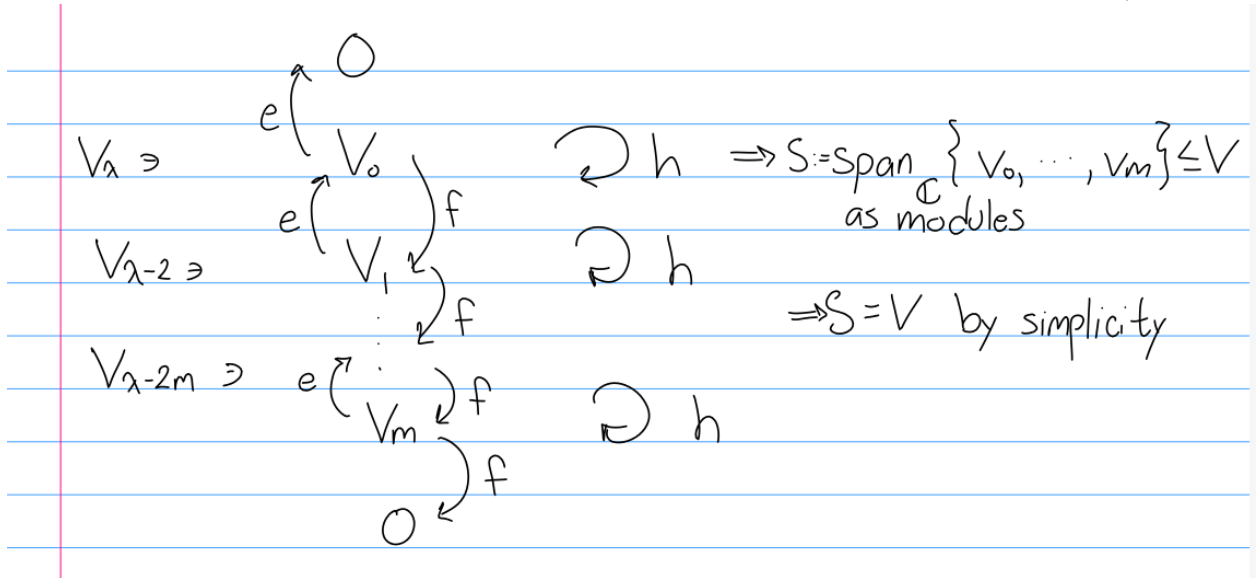 O
e
V_λ ∋ V_0 f h ⇒ S:=span_ℂ {V_0, ⋯, V_m} ≤ V
as modules
e
V_{λ-2} ∋ V_1 f h
⇒ S = V by simplicity
V_{λ-2m} ∋ e V_m f h
f
O